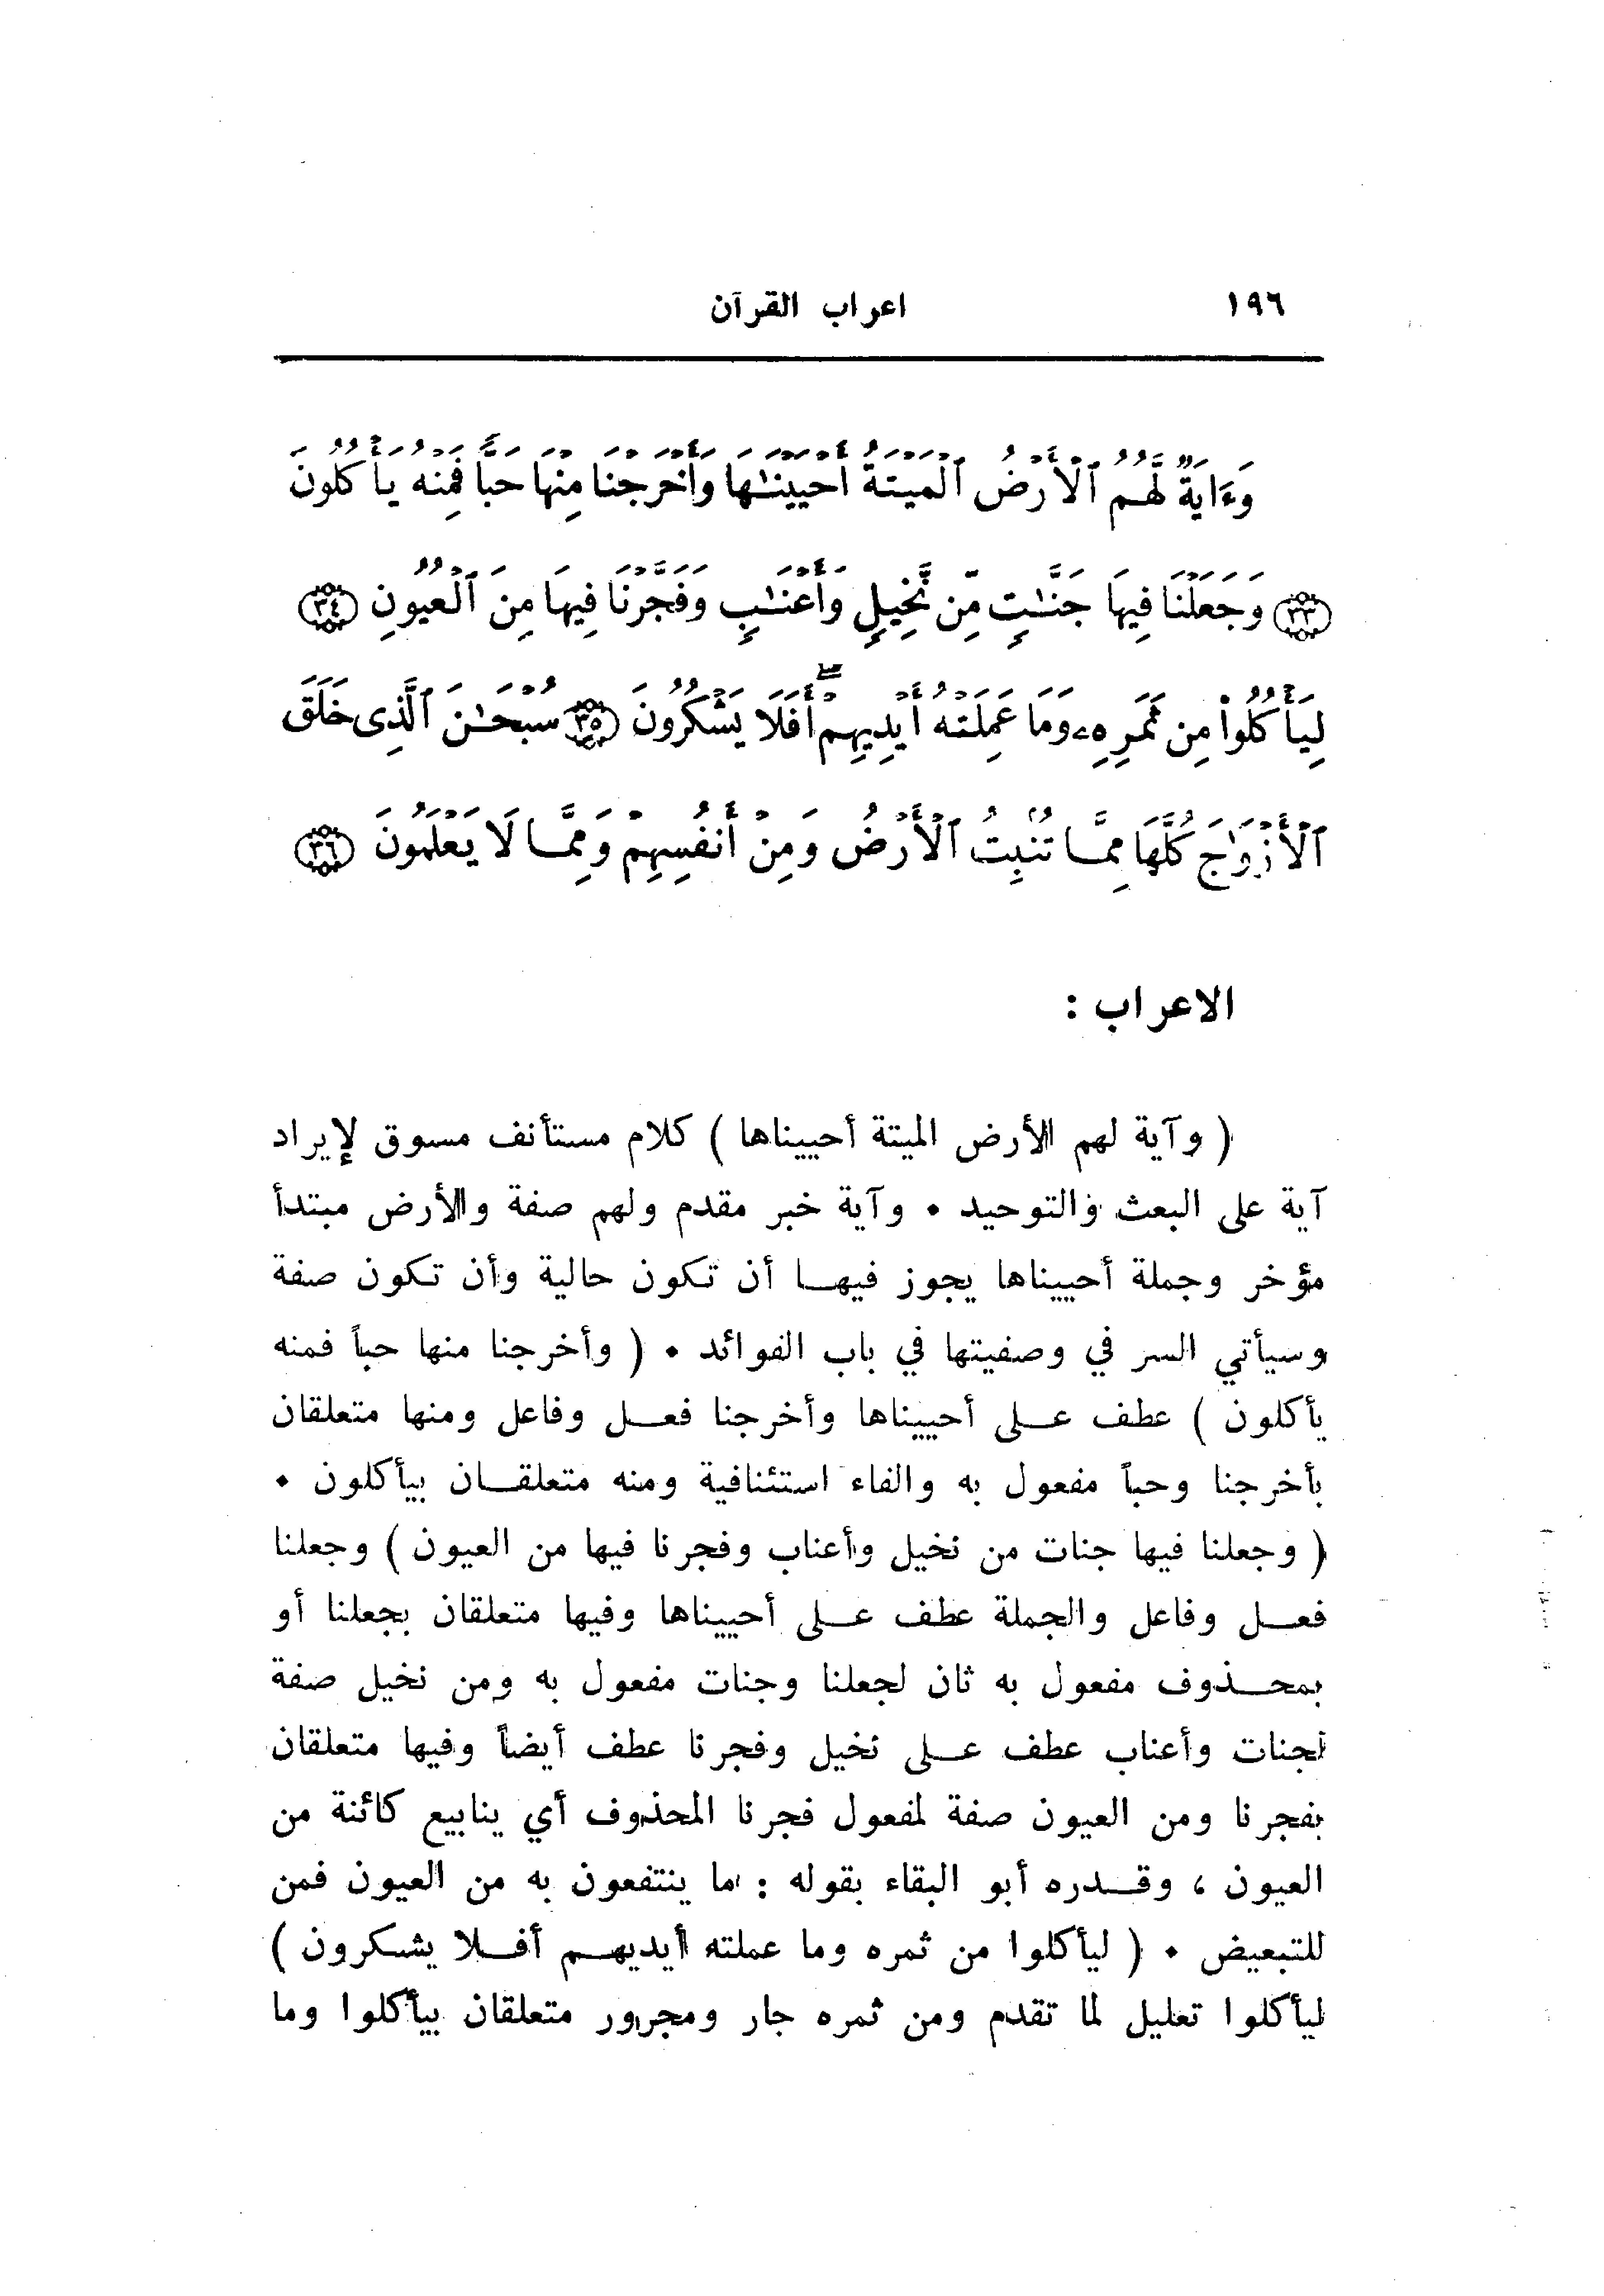 ١٩٦ اعراب القرآن
وَءَايَةٌ لَّهُمُ ٱلْأَرْضُ ٱلْمَيْتَةُ أَحْيَيْنَٰهَا وَأَخْرَجْنَا مِنْهَا حَبًّا فَمِنْهُ يَأْكُلُونَ
﴿٣٣﴾ وَجَعَلْنَا فِيهَا جَنَّٰتٍ مِّن نَّخِيلٍ وَأَعْنَٰبٍ وَفَجَّرْنَا فِيهَا مِنَ ٱلْعُيُونِ ﴿٣٤﴾
لِيَأْكُلُوا۟ مِن ثَمَرِهِۦ وَمَا عَمِلَتْهُ أَيْدِيهِمْ ۖ أَفَلَا يَشْكُرُونَ ﴿٣٥﴾ سُبْحَٰنَ ٱلَّذِى خَلَقَ
ٱلْأَزْوَٰجَ كُلَّهَا مِمَّا تُنۢبِتُ ٱلْأَرْضُ وَمِنْ أَنفُسِهِمْ وَمِمَّا لَا يَعْلَمُونَ ﴿٣٦﴾
الاعراب :
( وآية لهم الأرض الميتة أحييناها ) كلام مستأنف مسوق لإيراد
آية على البعث والتوحيد • وآية خبر مقدم ولهم صفة والأرض مبتدأ
مؤخر وجملة أحييناها يجوز فيهــا أن تكون حالية وأن تكون صفة
وسيأتي السر في وصفيتها في باب الفوائد • ( وأخرجنا منها حباً فمنه
يأكلون ) عطف عــلى أحييناها وأخرجنا فعــل وفاعل ومنها متعلقان
بأخرجنا وحباً مفعول به والفاء استئنافية ومنه متعلقــان بيأكلون •
( وجعلنا فيها جنات من نخيل وأعناب وفجرنا فيها من العيون ) وجعلنا
فعــل وفاعل والجملة عطف عــلى أحييناها وفيها متعلقان بجعلنا أو
بمحــذوف مفعول به ثان لجعلنا وجنات مفعول به ومن نخيل صفة
لجنات وأعناب عطف عــلى نخيل وفجرنا عطف أيضاً وفيها متعلقان
بفجرنا ومن العيون صفة لمفعول فجرنا المحذوف أي ينابيع كائنة من
العيون ، وقــدره أبو البقاء بقوله : ما ينتفعون به من العيون فمن
للتبعيض • ( ليأكلوا من ثمره وما عملته أيديهــم أفــلا يشكرون )
ليأكلوا تعليل لما تقدم ومن ثمره جار ومجرور متعلقان بيأكلوا وما